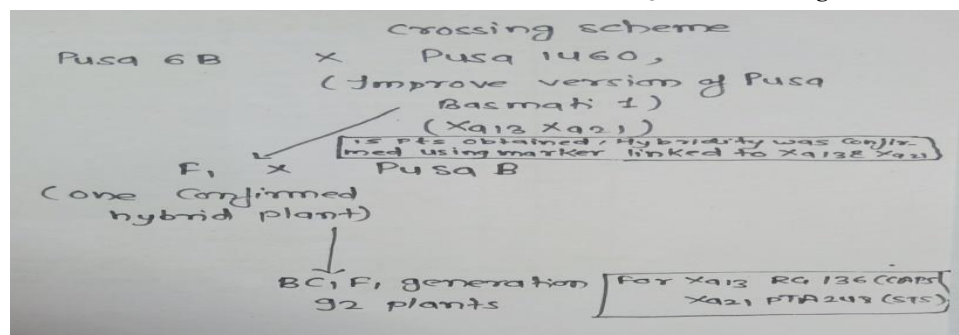 crossing scheme
Pusa 6B × Pusa 1460,
(Improve version of Pusa
Basmati 1)
(Xa13 Xa21)
15 Pts obtained, Hybridity was confir-
med using marker linked to Xa13& Xa21
F1 × Pusa B
(one Confirmed
hybrid plant)
BC1F1 generation
92 plants
For Xa13 RG 136 (CAPS)
Xa21 PTA248 (STS)